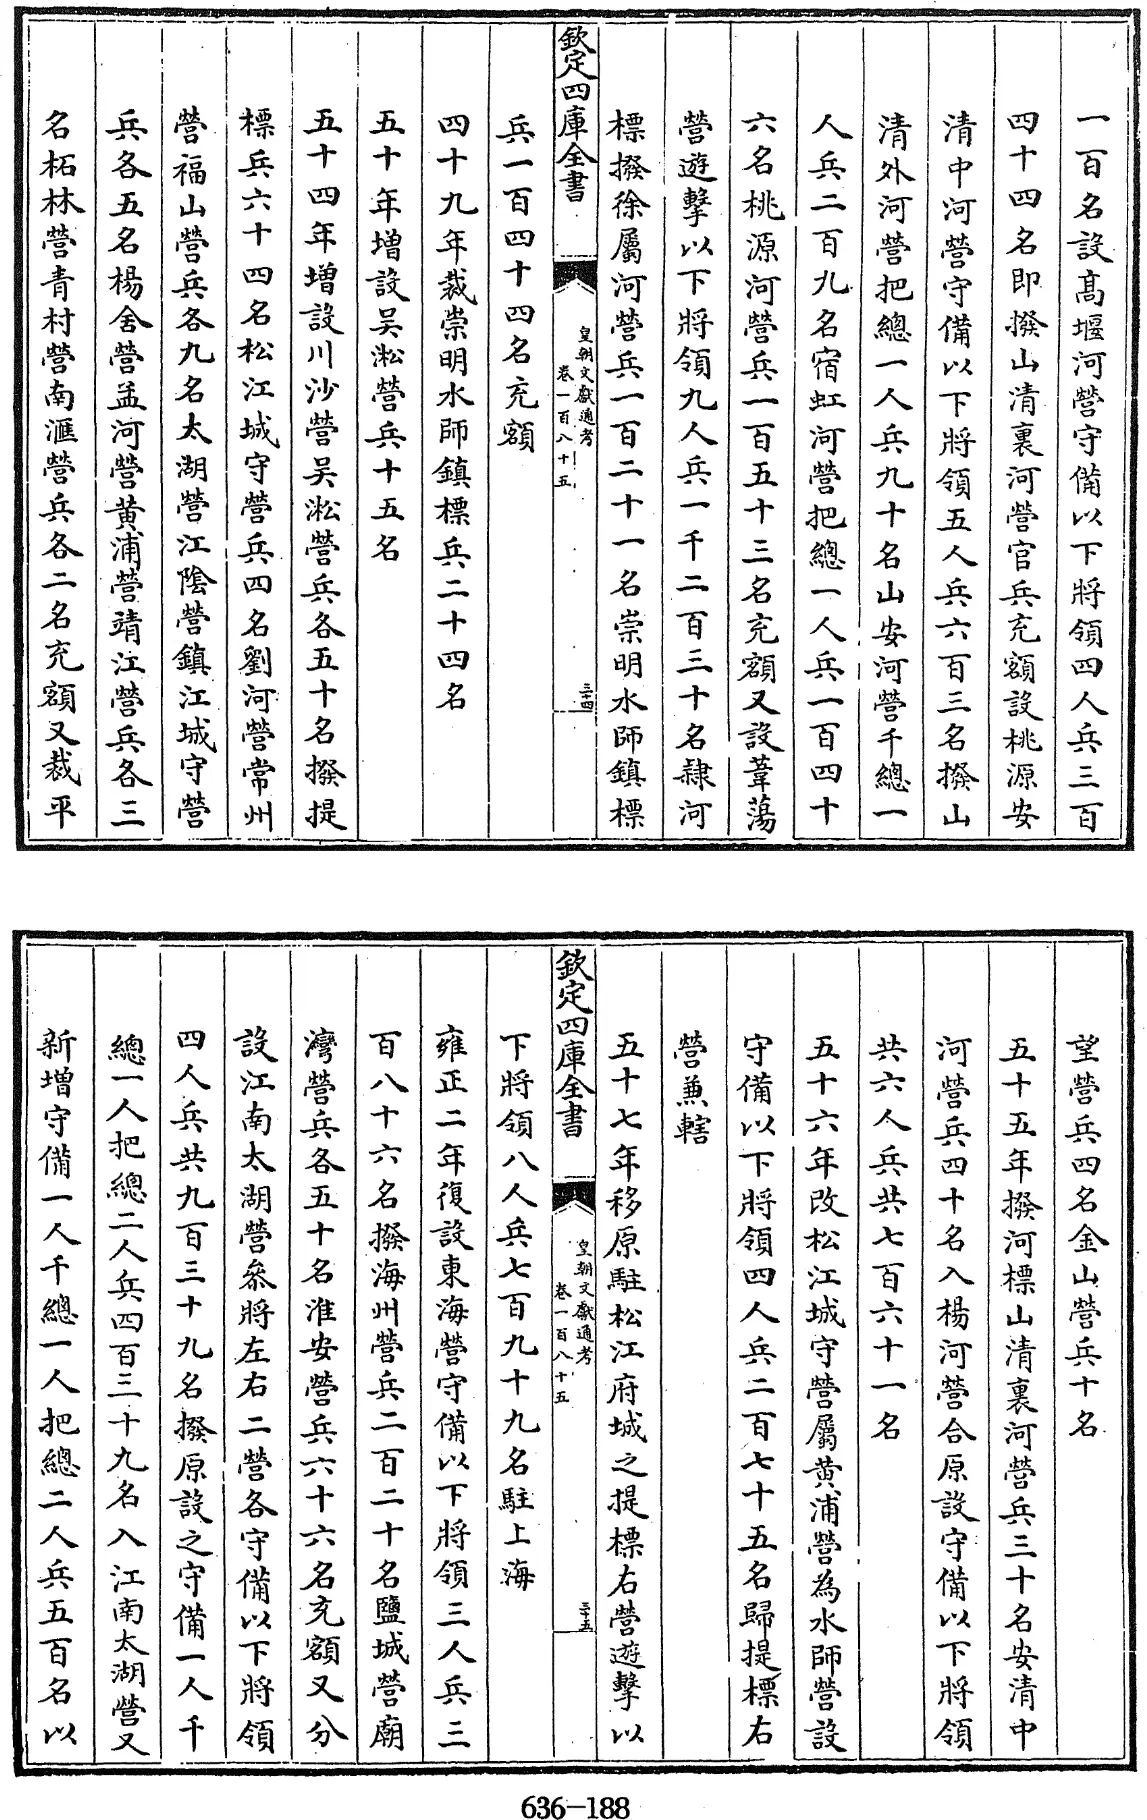 一百名設髙堰河營守備以下將領四人兵三百
四十四名即撥山清裏河營官兵充額設桃源安
清中河營守備以下將領五人兵六百三名撥山
清外河營把總一人兵九十名山安河營千總一
人兵二百九名宿虹河營把總一人兵一百四十
六名桃源河營兵一百五十三名充額又設葦蕩
營遊擊以下將領九人兵一千二百三十名隷河
標撥徐屬河營兵一百二十一名崇明水師鎮標
欽定四庫全書
皇朝文獻通考
卷一百八十五
三十四
兵一百四十四名充額
四十九年裁崇明水師鎮標兵二十四名
五十年増設吴淞營兵十五名
五十四年増設川沙營吴淞營兵各五十名撥提
標兵六十四名松江城守營兵四名劉河營常州
營福山營兵各九名太湖營江隂營鎮江城守營
兵各五名楊舍營孟河營黄浦營靖江營兵各三
名柘林營青村營南滙營兵各二名充額又裁平
望營兵四名金山營兵十名
五十五年撥河標山清裏河營兵三十名安清中
河營兵四十名入楊河營合原設守備以下將領
共六人兵共七百六十一名
五十六年改松江城守營屬黄浦營為水師營設
守備以下將領四人兵二百七十五名歸提標右
營兼轄
五十七年移原駐松江府城之提標右營遊擊以
欽定四庫全書
皇朝文獻通考
卷一百八十五
三十五
下將領八人兵七百九十九名駐上海
雍正二年復設東海營守備以下將領三人兵三
百八十六名撥海州營兵二百二十名鹽城營廟
灣營兵各五十名淮安營兵六十六名充額又分
設江南太湖營叅將左右二營各守備以下將領
四人兵共九百三十九名撥原設之守備一人千
總一人把總二人兵四百三十九名入江南太湖營又
新増守備一人千總一人把總二人兵五百名以
636-188